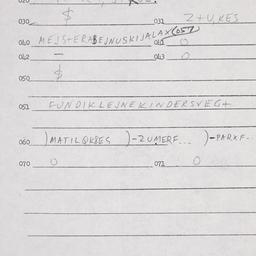 030 $ 031 Z+U,KES
040 MEJS+ERABEJNUSKIJALAX(057) 041 0
042 — 043 0
050 $
051 FUNDIKLEJNEKINDERSVEG+
060 )MATILQKBES )-ZUMERF... )-PARXF-
070 0 071 0